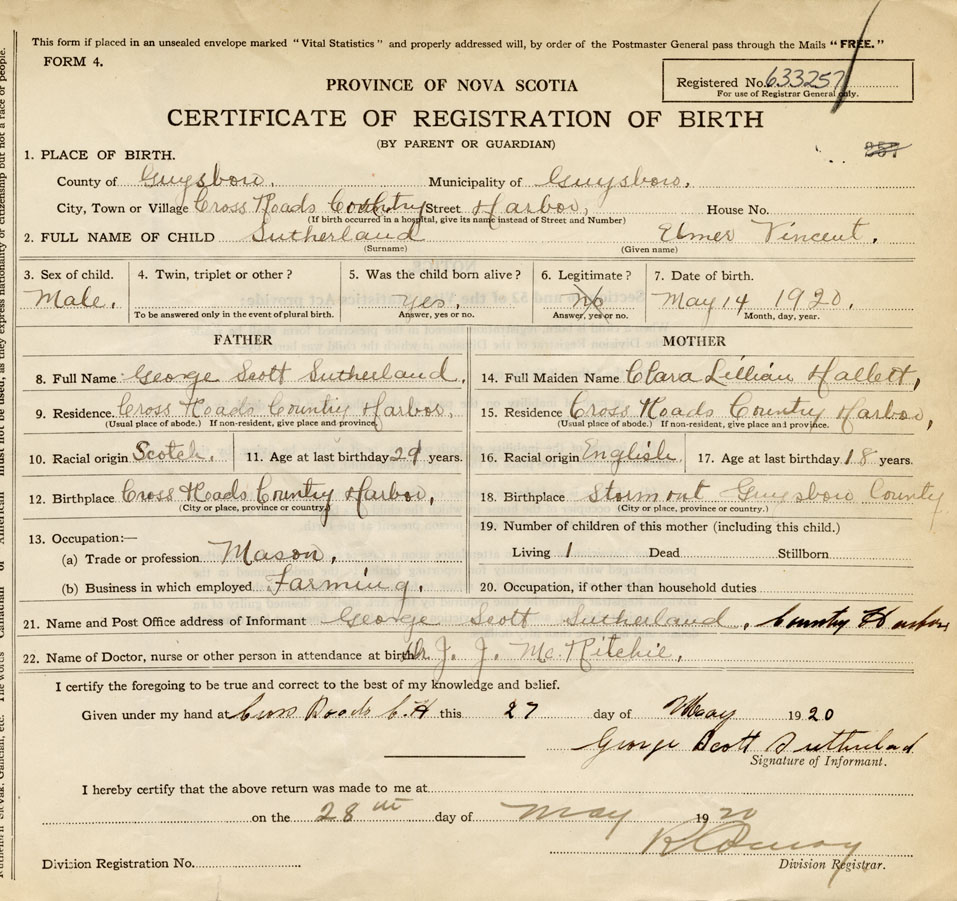 This form if placed in an unsealed envelope marked "Vital Statistics" and properly addressed will, by order of the Postmaster General pass through the Mails "FREE."
FORM 4.
Registered No. 633257
For use of Registrar General only.
PROVINCE OF NOVA SCOTIA
CERTIFICATE OF REGISTRATION OF BIRTH
(BY PARENT OR GUARDIAN)
257
1. PLACE OF BIRTH.
County of Guysboro. Municipality of Guysboro.
City, Town or Village Cross Roads Country Street Harbor, House No.
(If birth occurred in a hospital, give its name instead of Street and Number)
2. FULL NAME OF CHILD Sutherland Elmer Vincent.
(Surname) (Given name)
3. Sex of child. 4. Twin, triplet or other? 5. Was the child born alive? 6. Legitimate? 7. Date of birth.
Male. yes. No May 14 1920.
To be answered only in the event of plural birth. Answer, yes or no. Answer, yes or no. Month, day, year.
FATHER
8. Full Name George Scott Sutherland.
9. Residence Cross Roads Country Harbor.
(Usual place of abode.) If non-resident, give place and province.
10. Racial origin Scotch. 11. Age at last birthday 29 years.
12. Birthplace Cross Roads Country Harbor,
(City or place, province or country.)
13. Occupation:—
(a) Trade or profession Mason,
(b) Business in which employed Farming.
MOTHER
14. Full Maiden Name Clara Lillian Hallett,
15. Residence Cross Roads Country Harbor,
(Usual place of abode.) If non-resident, give place and province.
16. Racial origin English. 17. Age at last birthday 18 years.
18. Birthplace Stormont Guysboro County
(City or place, province or country.)
19. Number of children of this mother (including this child.)
Living 1 Dead Stillborn
20. Occupation, if other than household duties
21. Name and Post Office address of Informant George Scott Sutherland, Country Harbor
22. Name of Doctor, nurse or other person in attendance at birth Dr J. J. McRitchie.
I certify the foregoing to be true and correct to the best of my knowledge and belief.
Given under my hand at Cross Roads C. H this 27 day of May 1920
George Scott Sutherland
Signature of Informant.
I hereby certify that the above return was made to me at
on the 28th day of May 1920
Division Registration No. Division Registrar.